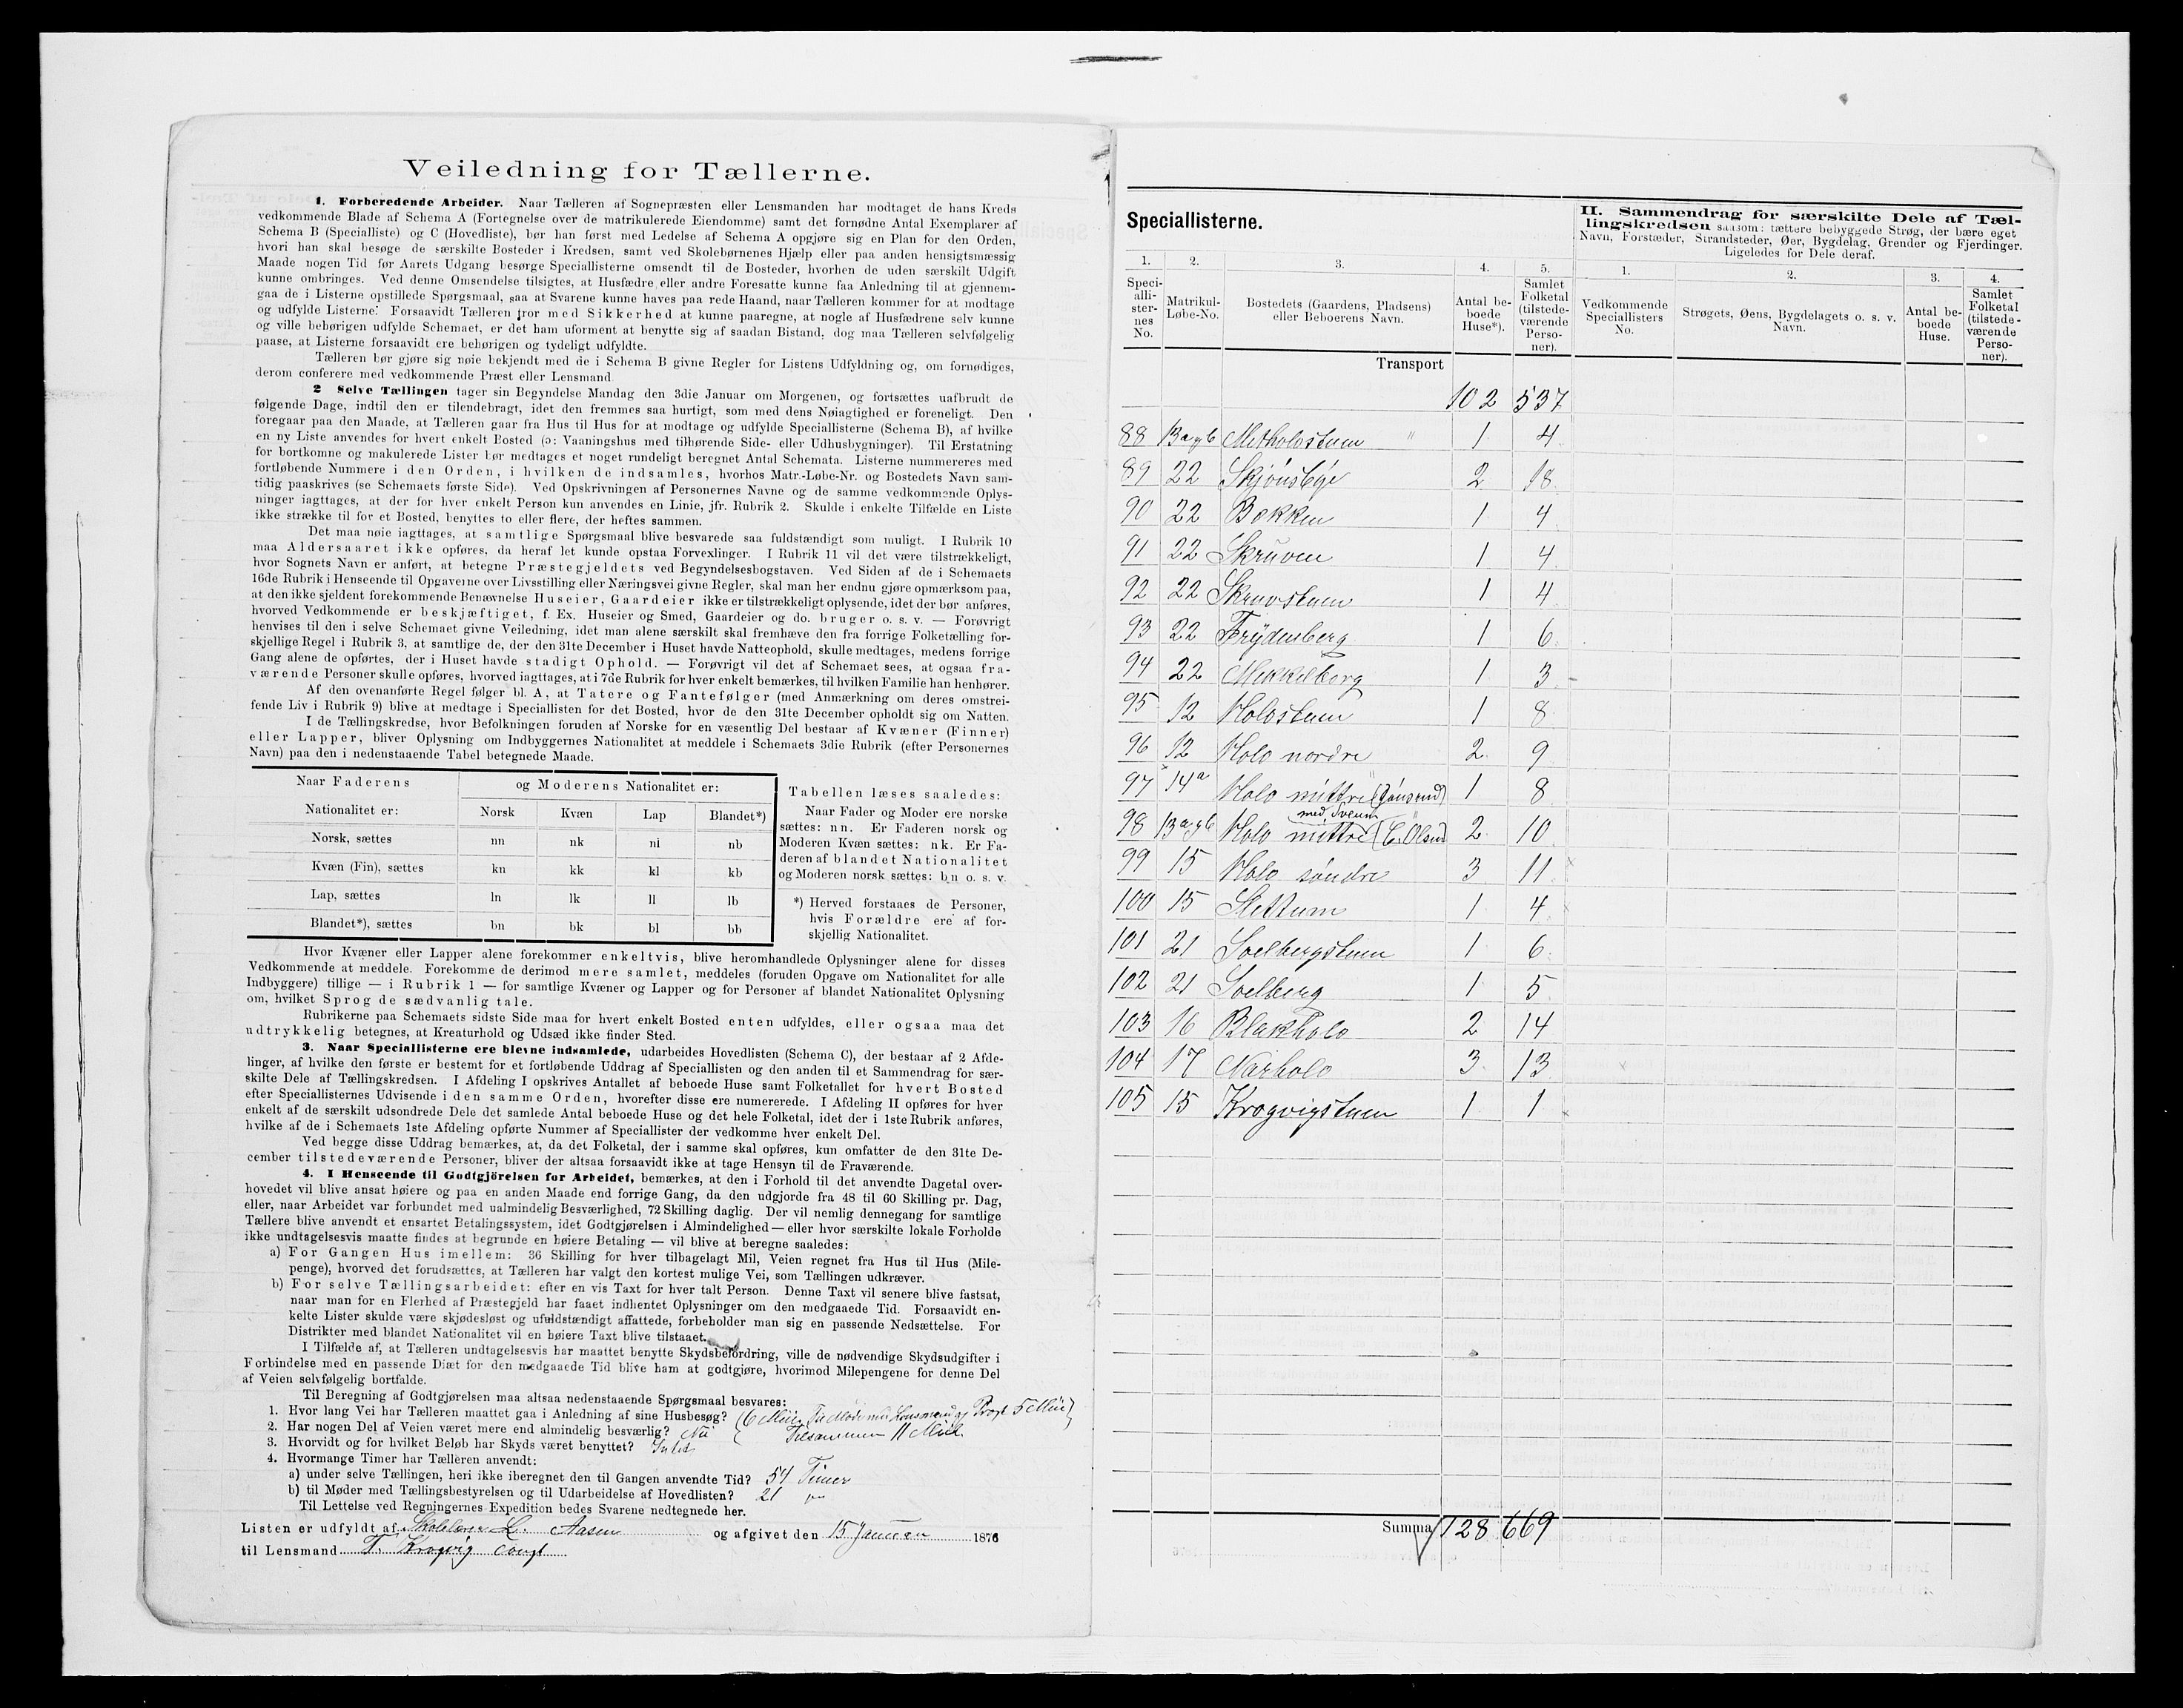 Veiledning for Tællerne.
1. Forberedende Arbeider. Naar Tælleren af Sognepræsten eller Lensmanden har modtaget de hans Kreds
vedkommende Blade af Schema A (Fortegnelse over de matrikulerede Eiendomme) samt det fornødne Antal Exemplarer af
Schema B (Specialliste) og C (Hovedliste), bør han først med Ledelse af Schema A opgjøre sig en Plan for den Orden,
hvori han skal besøge de særskilte Bosteder i Kredsen, samt ved Skolebørnenes Hjælp eller paa anden hensigtsmæssig
Maade nogen Tid før Aarets Udgang besørge Speciallisterne omsendt til de Bosteder, hvorhen de uden særskilt Udgift
kunne ombringes. Ved denne Omsendelse tilsigtes, at Husfædre eller andre Foresatte kunne faa Anledning til at gjennem-
gaa de i Listerne opstillede Spørgsmaal, saa at Svarene kunne haves paa rede Haand, naar Tælleren kommer for at modtage
og udfylde Listerne. Forsaavidt Tælleren tror med Sikkerhed at kunne paaregne, at nogle af Husfædrene selv kunne
og ville behørigen udfylde Schemaet, er det ham uforment at benytte sig af saadan Bistand, dog maa Tælleren selvfølgelig
paase, at Listerne forsaavidt ere behørigen og tydeligt udfyldte.
Tælleren bør gjøre sig nøie bekjendt med de i Schema B givne Regler for Listens Udfyldning og, om fornødiges,
derom conferere med vedkommende Præst eller Lensmand
2 Selve Tællingen tager sin Begyndelse Mandag den 3die Januar om Morgenen, og fortsættes uafbrudt de
følgende Dage, indtil den er tilendebragt, idet den fremmes saa hurtigt, som med dens Nøiagtighed er foreneligt. Den
foregaar paa den Maade, at Tælleren gaar fra Hus til Hus for at modtage og udfylde Speciallisterne (Schema B), af hvilke
en ny Liste anvendes for hvert enkelt Bosted (ɔ: Vaaningshus med tilhørende Side- eller Udhusbygninger). Til Erstatning
for bortkomne og makulerede Lister bør medtages et noget rundeligt beregnet Antal Schemata. Listerne nummereres med
fortløbende Nummere i den Orden, i hvilken de indsamles, hvorhos Matr.-Løbe-Nr. og Bostedets Navn sam-
tidig paaskrives (se Schemaets første Side). Ved Opskrivningen af Personernes Navne og de samme vedkommende Oplys-
ninger iagttages, at der for hver enkelt Person kun anvendes en Linie, jfr. Rubrik 2. Skulde i enkelte Tilfælde en Liste
ikke strække til for et Bosted, benyttes to eller flere, der heftes sammen.
Det maa nøie iagttages, at samtlige Spørgsmaal blive besvarede saa fuldstændigt som muligt. I Rubrik 10
maa Aldersaaret ikke opføres, da heraf let kunde opstaa Forvexlinger. I Rubrik 11 vil det være tilstrækkeligt,
hvor Sognets Navn er anført, at betegne Præstegjeldets ved Begyndelsesbogstaven. Ved Siden af de i Schemaets
16de Rubrik i Henseende til Opgaverne over Livsstilling eller Næringsvei givne Regler, skal man her endnu gjøre opmærksom paa,
at den ikke sjeldent forekommende Benævnelse Huseier, Gaardeier ikke er tilstrækkeligt oplysende, idet der bør anføres,
hvorved Vedkommende er beskjæftiget, f. Ex. Huseier og Smed, Gaardeier og do. bruger o. s. v. — Forøvrigt
henvises til den i selve Schemaet givne Veiledning, idet man alene særskilt skal fremhæve den fra forrige Folketælling for-
skjellige Regel i Rubrik 3, at samtlige de, der den 31te December i Huset havde Natteophold, skulle medtages, medens forrige
Gang alene de opførtes, der i Huset havde stadigt Ophold. — Forøvrigt vil det af Schemaet sees, at ogsaa fra-
værende Personer skulle opføres, hvorved iagttages, at i 7de Rubrik for hver enkelt bemærkes, til hvilken Familie han henhører.
Af den ovenanførte Regel følger bl. A, at Tatere og Fantefølger (med Anmærkning om deres omstrei-
fende Liv i Rubrik 9) blive at medtage i Speciallisten for det Bosted, hvor de den 31te December opholdt sig om Natten.
I de Tællingskredse, hvor Befolkningen foruden af Norske for en væsentlig Del bestaar af Kvæner (Finner)
eller Lapper, bliver Oplysning om Indbyggernes Nationalitet at meddele i Schemaets 3die Rubrik (efter Personernes
Navn) paa den i nedenstaaende Tabel betegnede Maade.
Naar Faderens og Moderens Nationalitet er:
Nationalitet er: Norsk Kvæn Lap Blandet*)
Norsk, sættes nn nk nl nb
Kvæn (Fin), sættes kn kk kl kb
Lap, sættes ln lk ll lb
Blandet*), sættes bn bk bl bb
Tabellen læses saaledes:
Naar Fader og Moder ere norske
sættes: nn. Er Faderen norsk og
Moderen Kvæn sættes: nk. Er Fa-
deren af blandet Nationalitet
og Moderen norsk sættes: bn o. s. v.
*) Herved forstaaes de Personer,
hvis Forældre ere af for-
skjellig Nationalitet.
Hvor Kvæner eller Lapper alene forekommer enkeltvis, blive heromhandlede Oplysninger alene for disses
Vedkommende at meddele. Forekomme de derimod mere samlet, meddeles (foruden Opgave om Nationalitet for alle
Indbyggere) tillige — i Rubrik 1 — for samtlige Kvæner og Lapper og for Personer af blandet Nationalitet Oplysning
om, hvilket Sprog de sædvanlig tale.
Rubrikerne paa Schemaets sidste Side maa for hvert enkelt Bosted enten udfyldes, eller ogsaa maa det
udtrykkelig betegnes, at Kreaturhold og Udsæd ikke finder Sted.
3. Naar Speciallisterne ere blevne indsamlede, udarbeides Hovedlisten (Schema C), der bestaar af 2 Afde-
linger, af hvilke den første er bestemt for et fortløbende Uddrag af Speciallisten og den anden til et Sammendrag for sær-
skilte Dele af Tællingskredsen. I Afdeling I opskrives Antallet af beboede Huse samt Folketallet for hvert Bosted
efter Speciallisternes Udvisende i den samme Orden, hvorefter disse ere numererede. I Afdeling II opføres for hver
enkelt af de særskilt udsondrede Dele det samlede Antal beboede Huse og det hele Folketal, idet der i 1ste Rubrik anføres,
hvilke af de i Schemaets 1ste Afdeling opførte Nummer af Speciallister der vedkomme hver enkelt Del.
Ved begge disse Uddrag bemærkes, at, da det Folketal, der i samme skal opføres, kun omfatter de den 31te De-
cember tilstedeværende Personer, bliver der altsaa forsaavidt ikke at tage Hensyn til de Fraværende.
4. I Henseende til Godtgjörelsen for Arbeidet, bemærkes, at den i Forhold til det anvendte Dagetal over-
hovedet vil blive ansat høiere og paa en anden Maade end forrige Gang, da den udgjorde fra 48 til 60 Skilling pr. Dag,
eller, naar Arbeidet var forbundet med ualmindelig Besværlighed, 72 Skilling daglig. Der vil nemlig dennegang for samtlige
Tællere blive anvendt et ensartet Betalingssystem, idet Godtgjørelsen i Almindelighed — eller hvor særskilte lokale Forholde
ikke undtagelsesvis maatte findes at begrunde en høiere Betaling — vil blive at beregne saaledes:
a) For Gangen Hus imellem: 36 Skilling for hver tilbagelagt Mil, Veien regnet fra Hus til Hus (Mile-
penge), hvorved det forudsættes, at Tælleren har valgt den kortest mulige Vei, som Tællingen udkræver.
b) For selve Tællingsarbeidet: efter en vis Taxt for hver talt Person. Denne Taxt vil senere blive fastsat,
naar man for en Flerhed af Præstegjeld har faaet indhentet Oplysninger om den medgaaede Tid. Forsaavidt en-
kelte Lister skulde være skjødesløst og ufuldstændigt affattede, forbeholder man sig en passende Nedsættelse. For
Distrikter med blandet Nationalitet vil en høiere Taxt blive tilstaaet.
I Tilfælde af, at Tælleren undtagelsesvis har maattet benytte Skydsbefordring, ville de nødvendige Skydsudgifter i
Forbindelse med en passende Diæt for den medgaaede Tid blive ham at godtgjøre, hvorimod Milepengene for denne Del
af Veien selvfølgelig bortfalde.
Til Beregning af Godtgjørelsen maa altsaa nedenstaaende Spørgsmaal besvares:
1. Hvor lang Vei har Tælleren maattet gaa i Anledning af sine Husbesøg? (6 Mile, 5 Mile)
2. Har nogen Del af Veien været mere end almindelig besværlig? Nei Tilsammen 11 Mile
3. Hvorvidt og for hvilket Beløb har Skyds været benyttet? Intet
4. Hvormange Timer har Tælleren anvendt:
a) under selve Tællingen, heri ikke iberegnet den til Gangen anvendte Tid? 54 Timer
b) til Møder med Tællingsbestyrelsen og til Udarbeidelse af Hovedlisten? 21 "
Til Lettelse ved Regningernes Expedition bedes Svarene nedtegnede her.
Listen er udfyldt af Skolelærer L. Aasen og afgivet den 15 Januar 1876
til Lensmand T. Krogvig const
Speciallisterne.
II. Sammendrag for særskilte Dele af Tæl-
lingskredsen saasom: tættere bebyggede Strøg, der bære eget
Navn, Forstæder, Strandsteder, Øer, Bygdelag, Grender og Fjerdinger.
Ligeledes for Dele deraf.
1. 2. 3. 4. 5. 1. 2. 3. 4.
Speci-
alli-
ster-
nes
No.
Matrikul-
Løbe-No.
Bostedets (Gaardens, Pladsens)
eller Beboerens Navn.
Antal be-
boede
Huse*).
Samlet
Folketal
(tilstede-
værende
Perso-
ner).
Vedkommende
Speciallisters
No.
Strøgets, Øens, Bygdelagets o. s. v.
Navn.
Antal be-
boede
Huse.
Samlet
Folketal
(tilstede-
værende
Perso-
ner).
Transport
102 537
88 13a,b Metholostuen " 1 4
89 22 Skjønsbye 2 18
90 22 Bækken 1 4
91 22 Skruven 1 4
92 22 Skruvstuen 1 4
93 22 Frydenberg 1 6
94 22 Mekkelborg 1 3
95 12 Holostuen 1 8
96 12 Holo nordre 2 9
97 14a Holo mittre (Jonsrud) 1 8
med Sveum
98 13a,b Holo mittre (C. Olsen) 2 10
99 15 Holo søndre 3 11
100 15 Slettum 1 4
101 21 Soelbergstuen 1 6
102 21 Soelberg 1 5
103 16 Blakholo 2 14
104 17 Narholo 3 13
105 15 Krogvigstuen 1 1
Summa 128 669